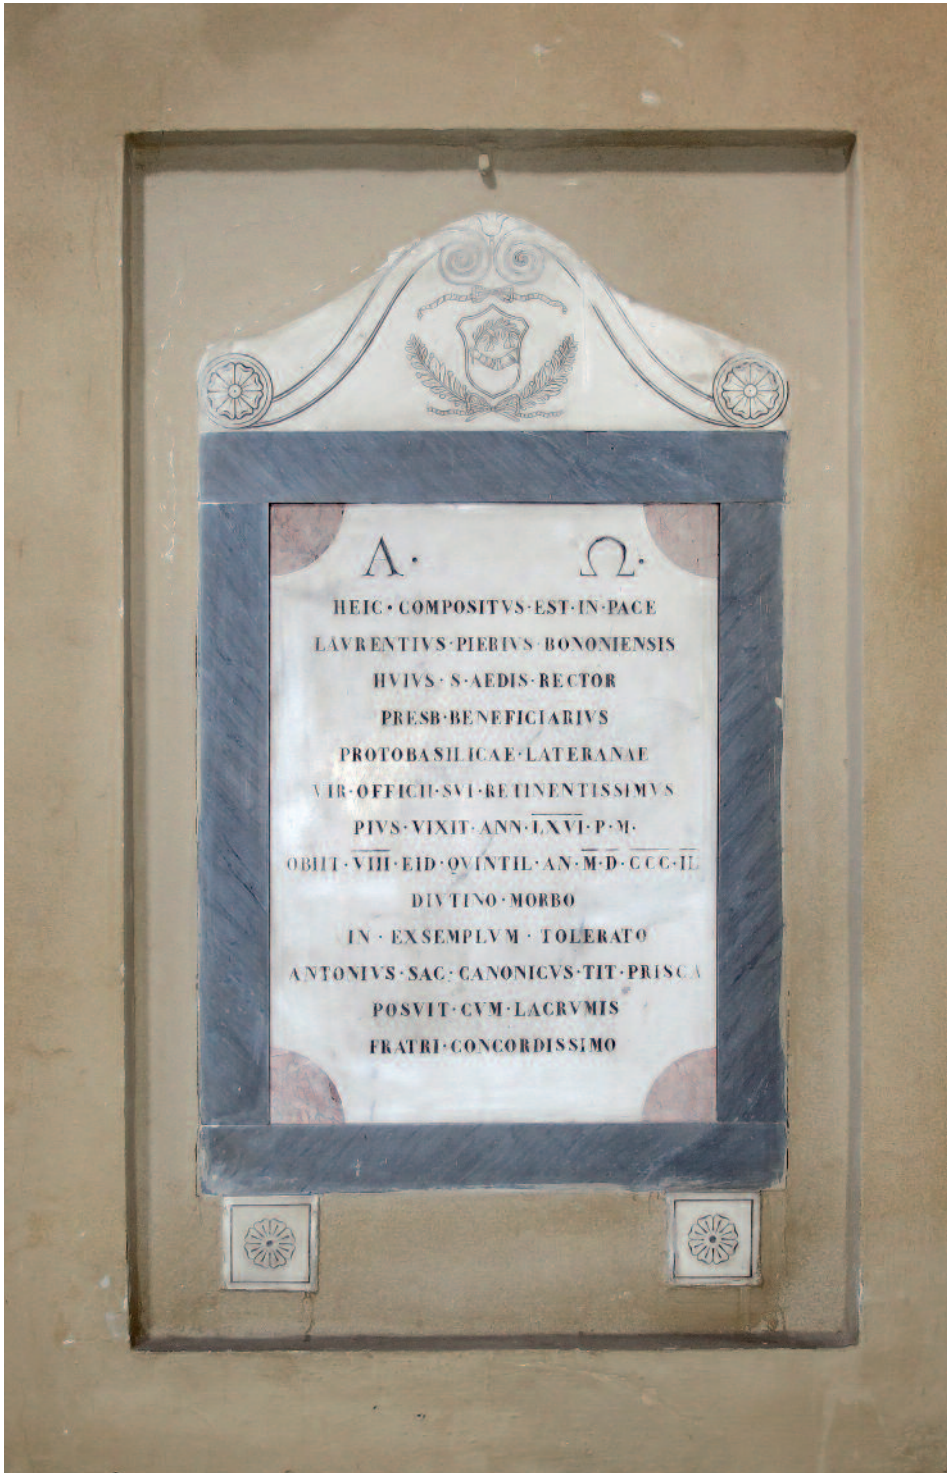 Α· Ω·
HEIC · COMPOSITVS · EST · IN · PACE
LAVRENTIVS · PIERIVS · BONONIENSIS
HVIVS · S · AEDIS · RECTOR
PRESB · BENEFICIARIVS
PROTOBASILICAE · LATERANAE
VIR · OFFICII · SVI · RETINENTISSIMVS
PIVS · VIXIT · ANN · L̅X̅V̅I̅ · P · M ·
OBIIT · V̅I̅I̅I̅ · EID · QVINTIL · AN · M̅ · D̅ · C̅C̅C̅ · I̅L̅
DIVTINO · MORBO
IN · EXSEMPLVM · TOLERATO
ANTONIVS · SAC · CANONICVS · TIT · PRISCA
POSVIT · CVM · LACRVMIS
FRATRI · CONCORDISSIMO